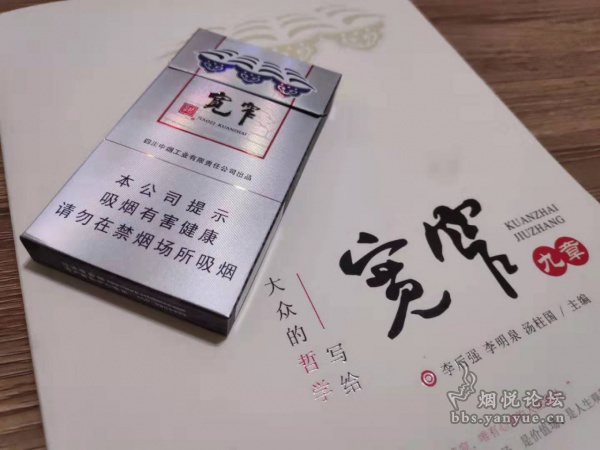 宽窄
KUANZHAI
四川中烟工业有限责任公司出品
本公司提示
吸烟有害健康
请勿在禁烟场所吸烟
宽窄
KUANZHAI
JIUZHANG
九章
写给
大众的哲学
李后强 李明泉 汤柱国/主编
烟悦论坛
bbs.yanyue.cn